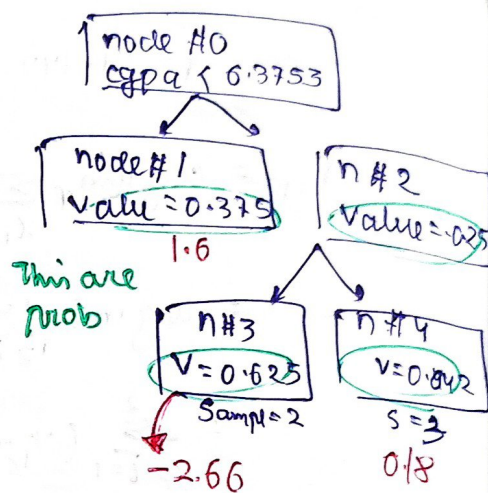 node #0
cgpa < 6.3753
node #1
value = 0.375
1.6
n #2
Value = .025
This are
prob
n#3
V = 0.625
Sample = 2
-2.66
n #4
V = 0.842
S = 3
0.18